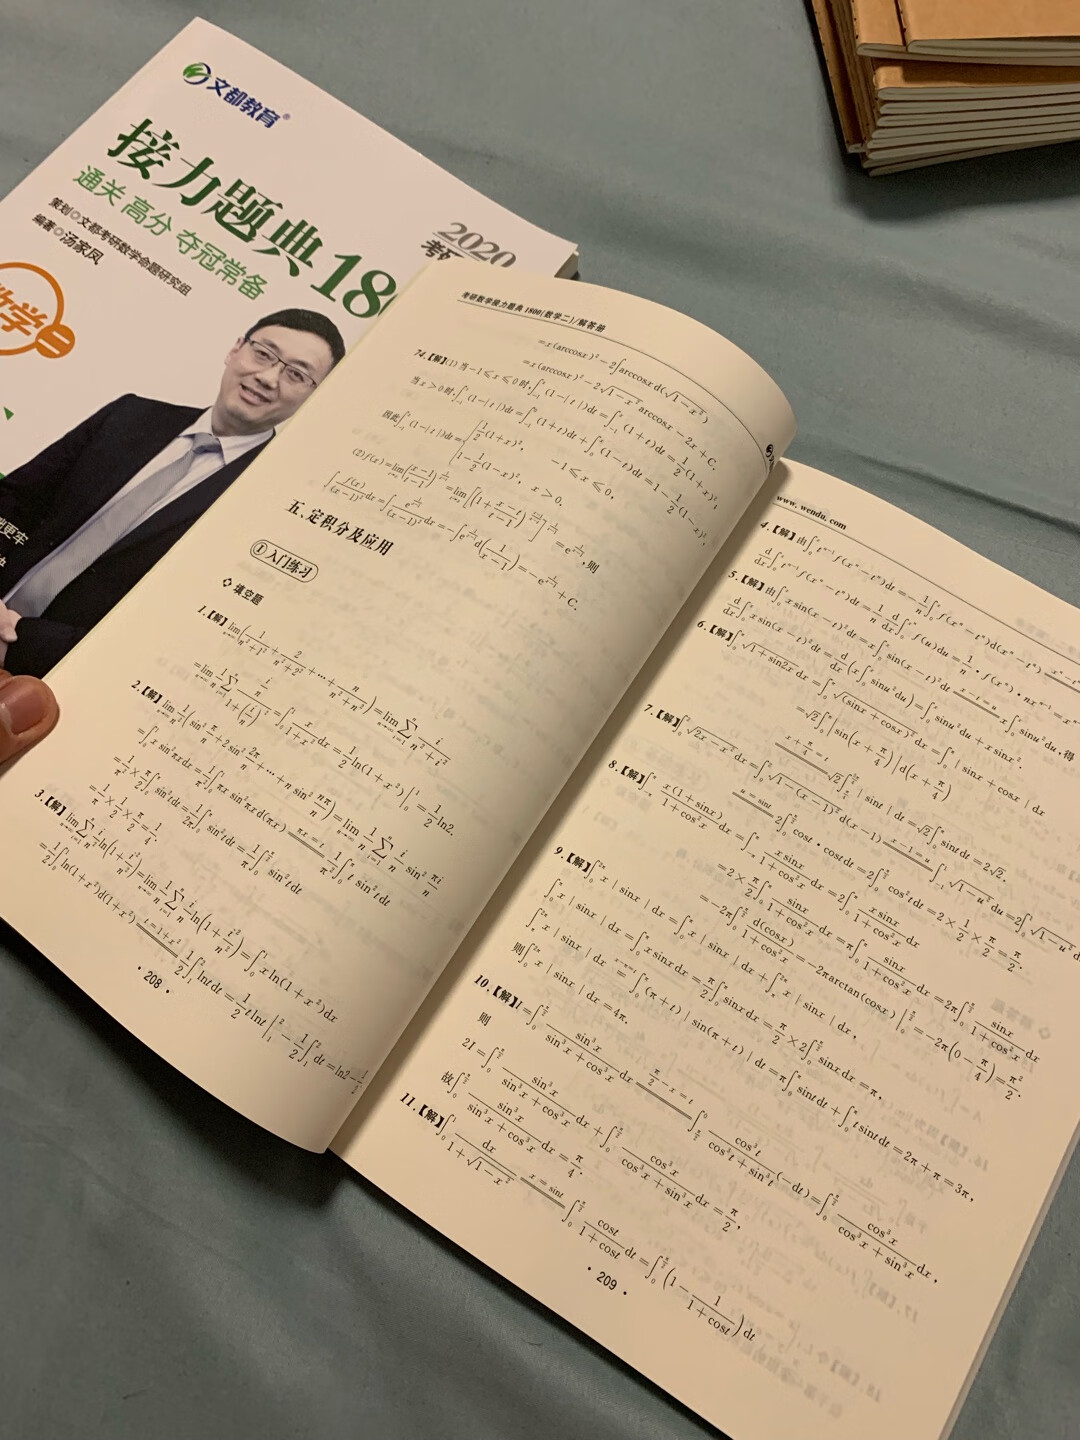 文都教育®
接力题典18
通关 高分 夺冠常备
策划◎文都考研数学命题研究组
编著◎汤家凤
2020
数学二
考研数学接力题典1800(数学二)/解答册
=x(arccosx)²-2∫arccosx d(√(1-x²))
=x(arccosx)²-2√(1-x²) arccosx-2x+C.
74.【解】(1)当-1≤x≤0时,∫₋₁ˣ(1-|t|)dt=∫₋₁ˣ(1+t)dt=1/2(1+x)²;
当x>0时,∫₋₁ˣ(1-|t|)dt=∫₋₁⁰(1+t)dt+∫₀ˣ(1-t)dt=1-1/2(1-x)²,
因此∫₋₁ˣ(1-|t|)dt={1/2(1+x)², -1≤x≤0,
1-1/2(1-x)², x>0.
五、定积分及应用
①入门练习
◇ 填空题
1.【解】lim(1/(n²+1²)+2/(n²+2²)+…+n/(n²+n²))=lim∑i/(n²+i²)
=lim 1/n ∑ (i/n)/(1+(i/n)²)=∫₀¹ x/(1+x²)dx=1/2 ln(1+x²)|₀¹=1/2 ln2.
2.【解】lim 1/n(sin² π/n+2sin² 2π/n+…+n sin² nπ/n)=lim 1/n ∑ i/n sin² πi/n
=∫₀¹x sin²πxdx=1/π²∫₀¹πx sin²πx d(πx) πx=t 1/π²∫₀^π t sin²tdt
=1/π²×π/2∫₀^π sin²tdt=1/2π∫₀^π sin²tdt=1/π∫₀^(π/2) sin²tdt
=1/π×1/2×π/2=1/4.
3.【解】lim∑ i/n² ln(1+i²/n²)=lim 1/n ∑ i/n ln(1+i²/n²)=∫₀¹x ln(1+x²)dx
=1/2∫₀¹ln(1+x²)d(1+x²) t=1+x² 1/2∫₁²lntdt=1/2 t lnt|₁²-1/2∫₁²dt=ln2-1/2
·208·
www.wendu.com
5.【解】由∫₀ˣx sin(x-t)²dt=x∫₀ˣsin(x-t)²dt x-t=u x∫₀ˣsinu²du,得
d/dx∫₀ˣx sin(x-t)²dt=d/dx(x∫₀ˣsinu²du)=∫₀ˣsinu²du+x sinx².
6.【解】∫₀^π √(1+sin2x)dx=∫₀^π √((sinx+cosx)²)dx=∫₀^π|sinx+cosx|dx
=√2∫₀^π|sin(x+π/4)|d(x+π/4)
x+π/4=t √2∫|sint|dt=√2∫₀^π sintdt=2√2.
7.【解】∫₀²√(2x-x²)dx=∫₀²√(1-(x-1)²)d(x-1) x-1=u ∫₋₁¹√(1-u²)du=2∫₀¹√(1-u²)d
u=sint 2∫₀^(π/2)cost·costdt=2∫₀^(π/2)cos²tdt=2×1/2×π/2=π/2.
8.【解】∫₋π^π x(1+sinx)/(1+cos²x)dx=∫₋π^π xsinx/(1+cos²x)dx=2∫₀^π xsinx/(1+cos²x)dx
=2×π/2∫₀^π sinx/(1+cos²x)dx=π∫₀^π sinx/(1+cos²x)dx=2π∫₀^(π/2) sinx/(1+cos²x)dx
=-2π∫₀^(π/2) d(cosx)/(1+cos²x)=-2πarctan(cosx)|₀^(π/2)=-2π(0-π/4)=π²/2.
9.【解】∫₀^2π x|sinx|dx=∫₀^π x|sinx|dx+∫_π^2π x|sinx|dx,
∫₀^π x|sinx|dx=∫₀^π xsinxdx=π/2∫₀^π sinxdx=π/2×2∫₀^(π/2) sinxdx=π,
∫_π^2π x|sinx|dx x-π=t ∫₀^π(π+t)|sin(π+t)|dt=π∫₀^π sintdt+∫₀^π tsintdt=2π+π=3π,
则∫₀^2π x|sinx|dx=4π.
10.【解】I=∫₀^(π/2) sin³x/(sin³x+cos³x)dx π/2-x=t ∫_(π/2)^0 cos³t/(cos³t+sin³t)(-dt)=∫₀^(π/2) cos³x/(cos³x+sin³x)dx,
则
2I=∫₀^(π/2) sin³x/(sin³x+cos³x)dx+∫₀^(π/2) cos³x/(cos³x+sin³x)dx=π/2,
故∫₀^(π/2) sin³x/(sin³x+cos³x)dx=π/4.
11.【解】∫₀¹ dx/(1+√(1-x²)) x=sint ∫₀^(π/2) cost/(1+cost)dt=∫₀^(π/2)(1-1/(1+cost))dt
·209·